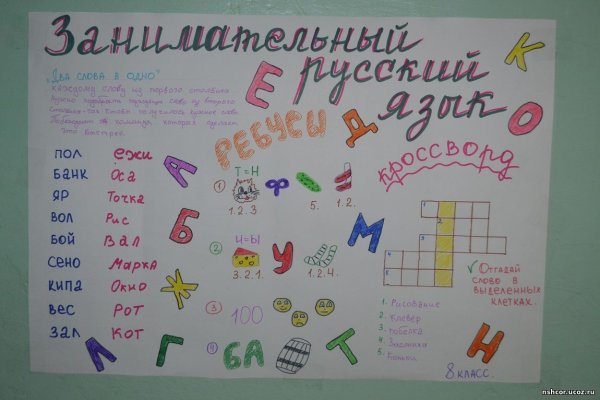 Занимательный
русский
язык
„Два слова в одно"
Каждому слову из первого столбика
нужно подобрать слово из второго
столбика так, чтобы получилось
Побеждает та команда, которая сделает
это быстрее.
пол ежи
банк Оса
яр Точка
вол Рис
бой Вал
сено Марка
кипа Окно
вес Рот
зал Кот
РЕБУСЫ
1
Т=Н
Ф
1.2.3
5.
1.2.
2
И=Ы
У
3.2.1.
1.2.4.
3
100
4
БА
кроссворд
1
2
3
4
5
√ Отгадай
слово в
выделенных
клетках.
1. Рисование
2. Клевер
3. побелка
4.
5. Коньки
8 класс.
Е
К
Д
О
А
Б
М
Ж
Л
Г
Т
Н
nshcor.ucoz.ru